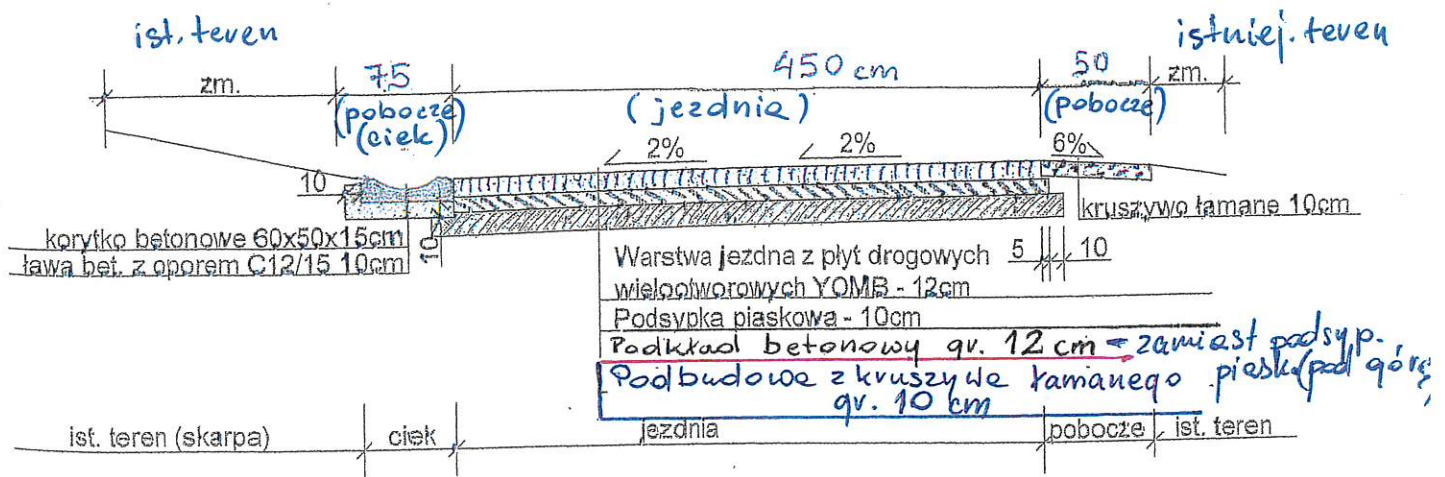 ist. teren
istniej. teren
zm.
75
450 cm
50
zm.
(pobocze)
(ciek)
(jezdnia)
(pobocze)
2%
2%
6%
10
kruszywo łamane 10cm
korytko betonowe 60x50x15cm
ława bet. z oporem C12/15 10cm
10
Warstwa jezdna z płyt drogowych
5
10
wielootworowych YOMB - 12cm
Podsypka piaskowa - 10cm
Podkład betonowy gr. 12 cm - zamiast podsyp.
piask. (pod górę)
Podbudowa z kruszywa łamanego
gr. 10 cm
ist. teren (skarpa)
ciek
jezdnia
pobocze
ist. teren